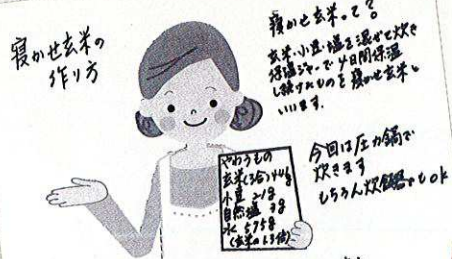 寝かせ玄米の
作り方
寝かせ玄米って?
玄米・小豆・塩を混ぜて炊き
保温ジャーで4日間保温
し続けたものを寝かせ玄米と
いいます。
今回は圧力鍋で
炊きます
もちろん炊飯器でもok
玄米(3合)
小豆
自然塩 3g
水 575g
(玄米の1.3倍)